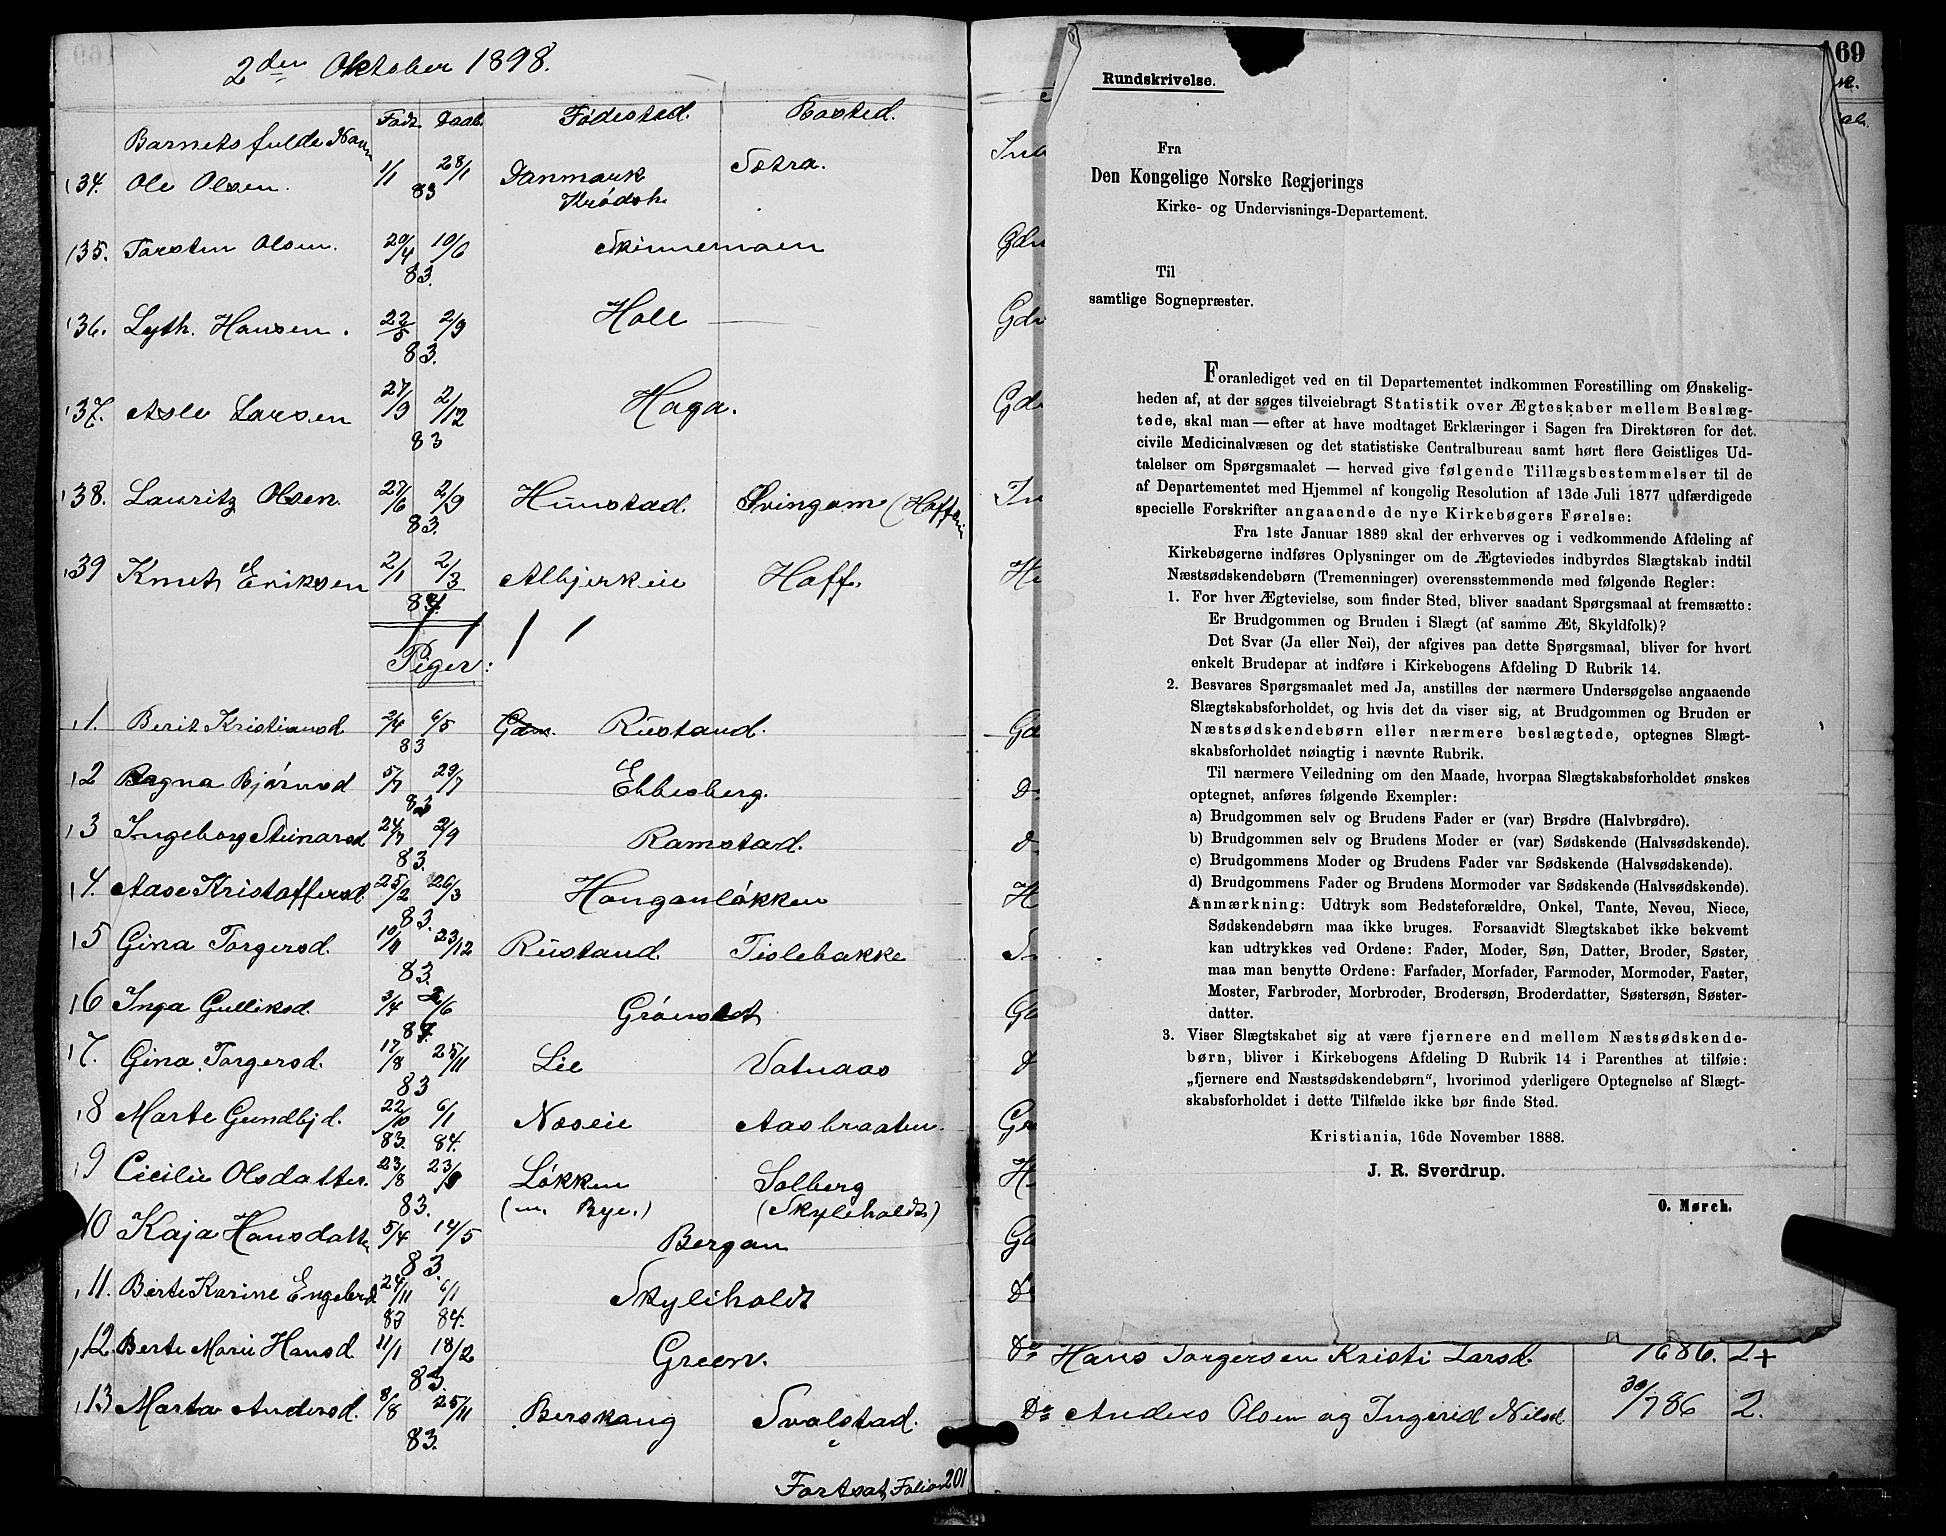 2den Oktober 1898.
Barnets fulde Navn Født Daab. Fødested. Bosted.
34. Ole Olsen. 1/1 28/1 83 Danmark Krødsh. Setra.
35. Torsten Olsen. 20/4 10/6 83. Skinnemoen
36. Lyth. Hansen. 22/5 2/9 83. Hole
37. Asle Larsen 27/9 2/12 83 Haga.
38. Lauritz Olsen. 27/6 2/9 83. Hunstad.
39 Knut Eriksen 2/1 2/3 Albjerkeie Hoff.
Piger:
1. Berit Kristiansd 2/4 6/5 83 Rustand.
2 Ragna Bjørnsd 5/7 29/7 83 Ebbesberg.
3 Ingeborg Steinarsd 24/7 2/9 83. Ramstad.
4. Aase Kristoffersd. 25/2 26/3 83. Honganløkken
5 Gina Torgersd. 10/11 23/12 83. Rustand. Tislebakke
6 Inga Gulliksd. 3/4 /6 Grønset
7. Gina Torgersd. 17/8 25/11 83 Lie Vatnaas
8 Marte Gundbjd. 22/10 83. 6/1 84. Næseie Aasbraaten.
9 Cicilie Olsdatter. 23/8 23/9 83. Løkken (u. Bye.) Solberg (Skyliholdt)
10 Kaja Hansdatte 5/4 14/5 83. Bergan
11. Berte Karine Engebrd 24/11 83 6/1 84. Skyliholdt
12. Berte Marie Hansd. 11/1 18/2 83. Green.
13 Marta Andersd. 8/8 25/11 83. Berskaug Svalstad.
Fortsat Folio 201
69
Rundskrivelse.
Fra
Den Kongelige Norske Regjerings
Kirke- og Undervisnings-Departement.
Til
samtlige Sognepræster.
Foranlediget ved en til Departementet indkommen Forestilling om Ønskelig-
heden af, at der søges tilveiebragt Statistik over Ægteskaber mellem Beslæg-
tede, skal man — efter at have modtaget Erklæringer i Sagen fra Direktøren for det
civile Medicinalvæsen og det statistiske Centralbureau samt hørt flere Geistliges Ud-
talelser om Spørgsmaalet — herved give følgende Tillægsbestemmelser til de
af Departementet med Hjemmel af kongelig Resolution af 13de Juli 1877 udfærdigede
specielle Forskrifter angaaende de nye Kirkebøgers Førelse:
Fra 1ste Januar 1889 skal der erhverves og i vedkommende Afdeling af
Kirkebøgerne indføres Oplysninger om de Ægteviedes indbyrdes Slægtskab indtil
Næstsødskendebørn (Tremenninger) overensstemmende med følgende Regler:
1. For hver Ægtevielse, som finder Sted, bliver saadant Spørgsmaal at fremsætte:
Er Brudgommen og Bruden i Slægt (af samme Æt, Skyldfolk)?
Det Svar (Ja eller Nei), der afgives paa dette Spørgsmaal, bliver for hvert
enkelt Brudepar at indføre i Kirkebogens Afdeling D Rubrik 14.
2. Besvares Spørgsmaalet med Ja, anstilles der nærmere Undersøgelse angaaende
Slægtskabsforholdet, og hvis det da viser sig, at Brudgommen og Bruden er
Næstsødskendebørn eller nærmere beslægtede, optegnes Slægt-
skabsforholdet nøiagtig i nævnte Rubrik.
Til nærmere Veiledning om den Maade, hvorpaa Slægtskabsforholdet ønskes
optegnet, anføres følgende Exempler:
a) Brudgommen selv og Brudens Fader er (var) Brødre (Halvbrødre).
b) Brudgommen selv og Brudens Moder er (var) Sødskende (Halvsødskende).
c) Brudgommens Moder og Brudens Fader var Sødskende (Halvsødskende).
d) Brudgommens Fader og Brudens Mormoder var Sødskende (Halvsødskende).
Anmærkning: Udtryk som Bedsteforældre, Onkel, Tante, Neveu, Niece,
Sødskendebørn maa ikke bruges. Forsaavidt Slægtskabet ikke bekvemt
kan udtrykkes ved Ordene: Fader, Moder, Søn, Datter, Broder, Søster,
maa man benytte Ordene: Farfader, Morfader, Farmoder, Mormoder, Faster,
Moster, Farbroder, Morbroder, Brodersøn, Broderdatter, Søstersøn, Søster-
datter.
3. Viser Slægtskabet sig at være fjernere end mellem Næstsødskende-
børn, bliver i Kirkebogens Afdeling D Rubrik 14 i Parenthes at tilføie:
„fjernere end Næstsødskendebørn“, hvorimod yderligere Optegnelse af Slægt-
skabsforholdet i dette Tilfælde ikke bør finde Sted.
Kristiania, 16de November 1888.
J. R. Sverdrup.
O. Mørch.
Do Hans Torgersen Kristi Larsd. 1686. 2+
Do Anders Olsen og Ingerid Nilsd. 30/7 86 2.